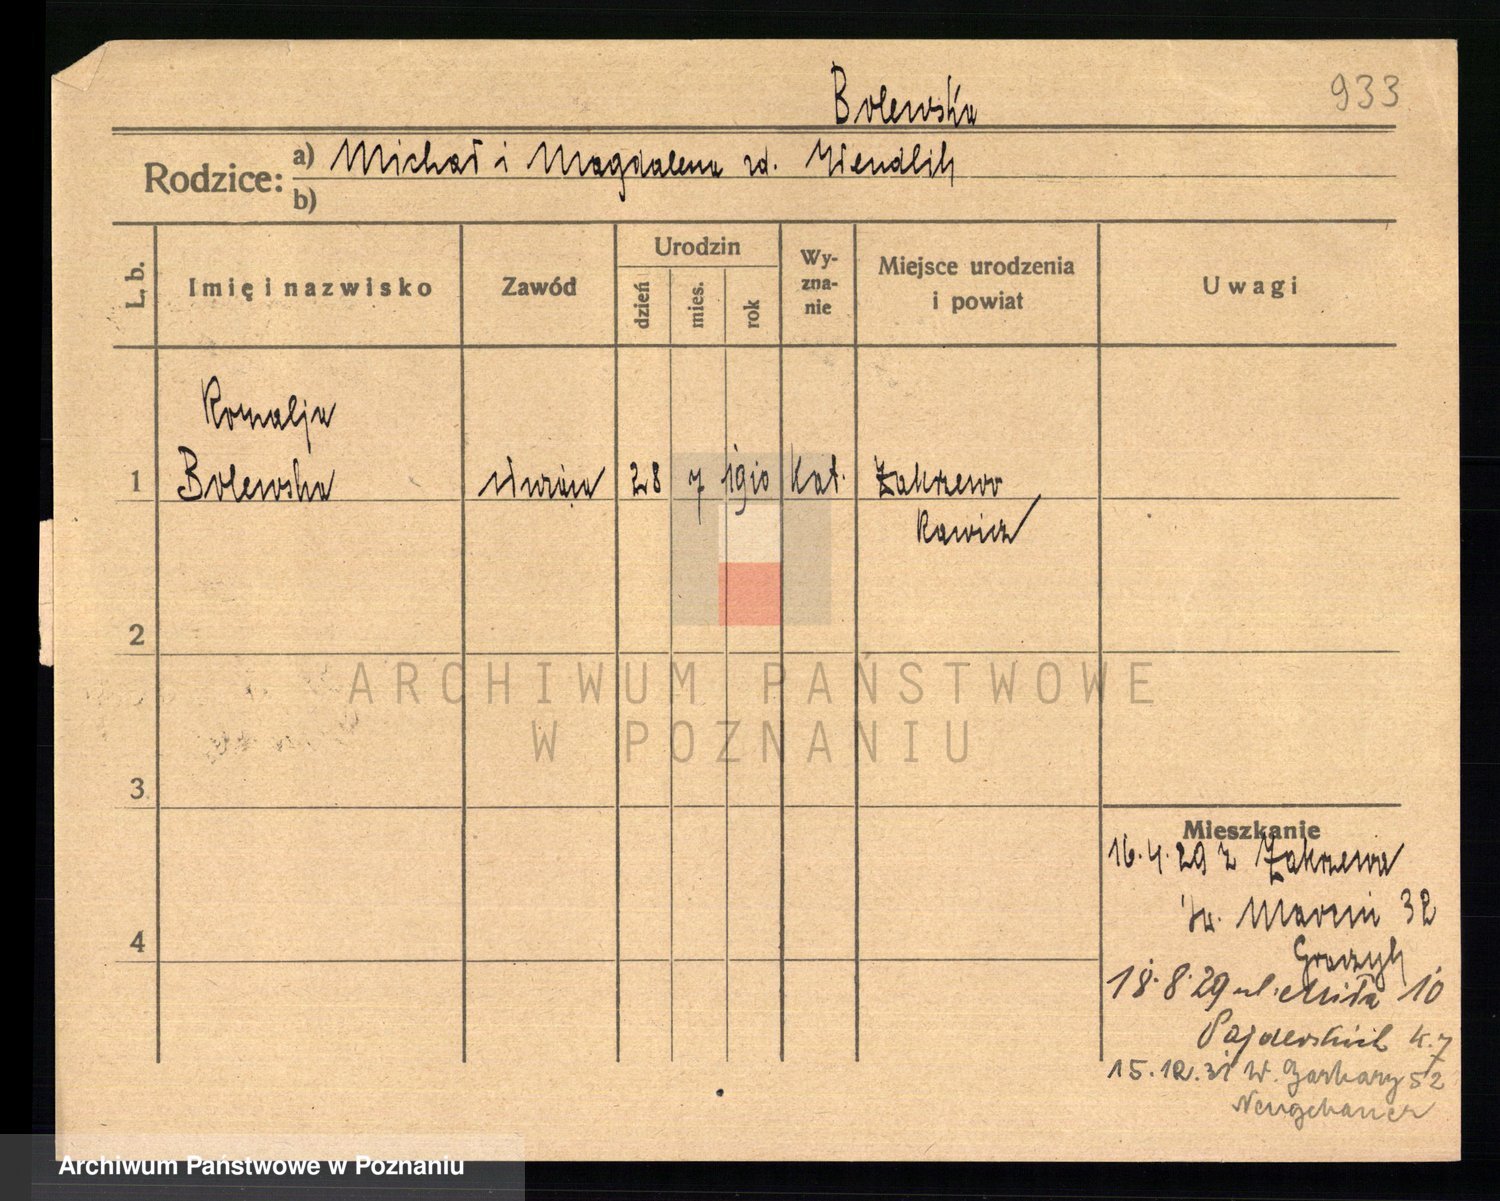 933
Bolewska
Rodzice: a) Michał i Magdalena zd. Wendlik
b)
L. b. Imię i nazwisko Zawód Urodzin dzień mies. rok Wyznanie Miejsce urodzenia i powiat Uwagi
Romalja
1 Bolewska służąca 28 7 1910 kat. Zakrzewo
Rawicz
2
ARCHIWUM PAŃSTWOWE
W POZNANIU
3
Mieszkanie
16.4.29 z Zakrzewa
Św. Marcin 32
18.8.29 ul. Miła 10
k. 7
15.12.31 W. Garbary 52
4
Archiwum Państwowe w Poznaniu